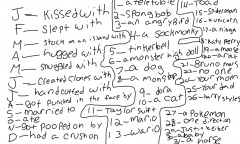 J - Kissed with
F - Slept with
M - Stuck on an island with
A - hugged with
M - snuggled with
J - Created clones with
J - handcuffed with
A - got punched in the face by
S - married to
O - ate
N - got pooped on by
D - had a crush
1 - a teletubbie
2 - Spongebob
3 - an angry Bird
4 - a sockmonkey
5 - tinkerbell
6 - a monster high doll
7 - a dog
8 - a monster
9 - dora
10 - a cat
11 - Taylor Swift
12 - mario
13 - wario
14 - Toad
15 - Slenderman
16 - a unicorn
17 - a ninja
18 - Katy Perry
19 - a
20 -
21 - Bruno mars
22 - no one
23 - your mom
24 - Obama
25 - Your dad
26 - harry styles
27 - a Pokemon
28 - one direction
29 - Justin Bieber
30 - a baby
31 - a horse